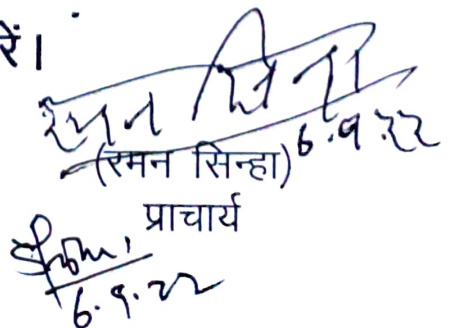 रें।
रमन सिन्हा
6.9.22
(रमन सिन्हा)
प्राचार्य
6.9.22